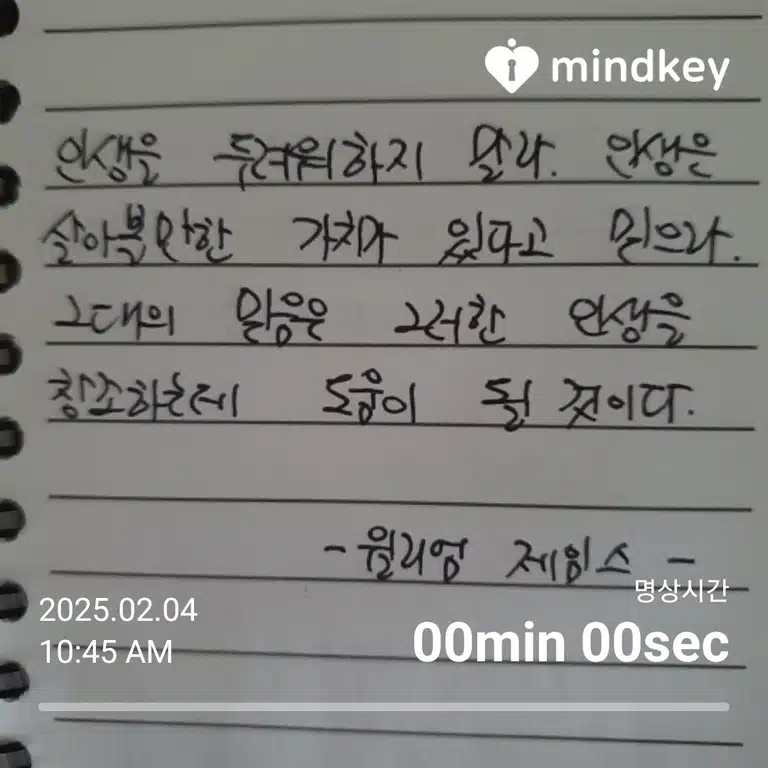 mindkey
인생을 두려워하지 말라. 인생은
살아볼만한 가치가 있다고 믿으라.
그대의 믿음은 그러한 인생을
창조하는데 도움이 될 것이다.
- 윌리엄 제임스 -
명상시간
2025.02.04
10:45 AM
00min 00sec